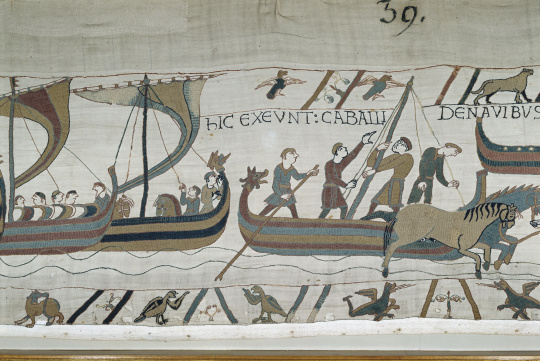 39.
HIC EXEVNT: CABALLI DENAVIBUS